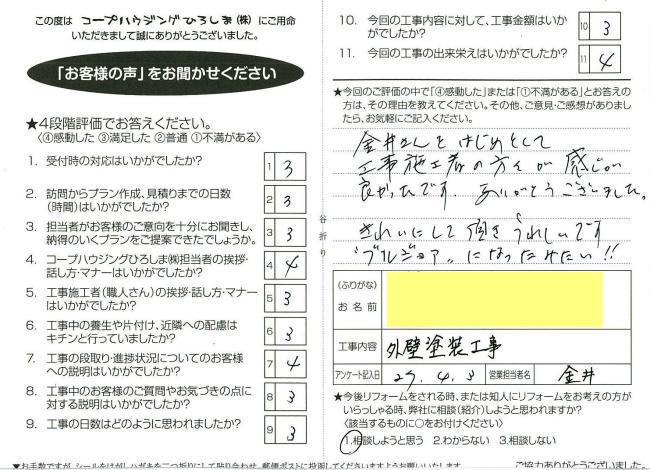 この度は コープハウジングひろしま(株) にご用命
いただきまして誠にありがとうございました。
「お客様の声」をお聞かせください
★4段階評価でお答えください。
〈④感動した ③満足した ②普通 ①不満がある〉
1. 受付時の対応はいかがでしたか?
1 3
2. 訪問からプラン作成、見積りまでの日数
(時間)はいかがでしたか?
2 3
3. 担当者がお客様のご意向を十分にお聞きし、
納得のいくプランをご提案できたでしょうか。
3 3
4. コープハウジングひろしま㈱担当者の挨拶・
話し方・マナーはいかがでしたか?
4 4
5. 工事施工者(職人さん)の挨拶・話し方・マナー
はいかがでしたか?
5 3
6. 工事中の養生や片付け、近隣への配慮は
キチンと行っていましたか?
6 3
7. 工事の段取り・進捗状況についてのお客様
への説明はいかがでしたか?
7 4
8. 工事中のお客様のご質問やお気づきの点に
対する説明はいかがでしたか?
8 3
9. 工事の日数はどのように思われましたか?
9 3
谷折り
10. 今回の工事内容に対して、工事金額はいか
がでしたか?
10 3
11. 今回の工事の出来栄えはいかがでしたか?
11 4
★今回のご評価の中で「④感動した」または「①不満がある」とお答えの
方は、その理由を教えてください。その他、ご意見・ご感想がありました
ら、お気軽にご記入ください。
金井さんをはじめとして
工事施工者の方々が感じが
良かったです。ありがとうございました。
きれいにして頂きうれしいです
"ブルジョア"になったみたい!!
(ふりがな)
お名前
工事内容 外壁塗装工事
アンケート記入日 27.4.3 営業担当者名 金井
★今後リフォームをされる時、または知人にリフォームをお考えの方が
いらっしゃる時、弊社に相談(紹介)しようと思われますか?
〈該当するものに○をお付けください〉
1.相談しようと思う 2.わからない 3.相談しない
ご協力ありがとうございました。